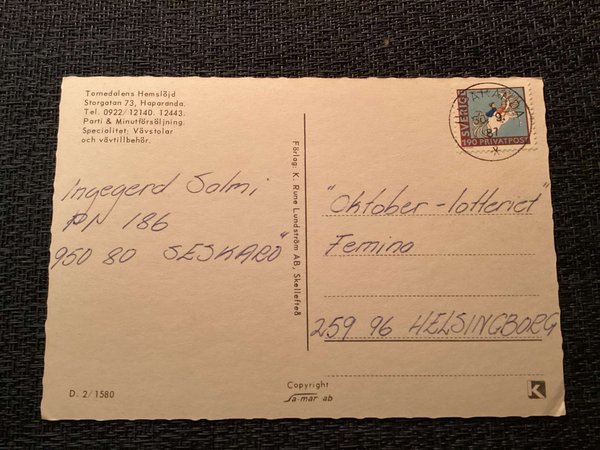 Tornedalens Hemslöjd
Storgatan 73, Haparanda.
Tel. 0922/12140. 12443.
Parti & Minutförsäljning.
Specialitet: Vävstolar
och vävtillbehör.
Ingegerd Salmi
PN 186
950 80 SESKARÖ
Förlag: K. Rune Lundström AB, Skellefteå
SVERIGE
190 PRIVATPOST
HAPARANDA
87
"Oktober-lotteriet"
Femina
259 96 HELSINGBORG
D. 2/1580
Copyright
Sa-mar ab
K